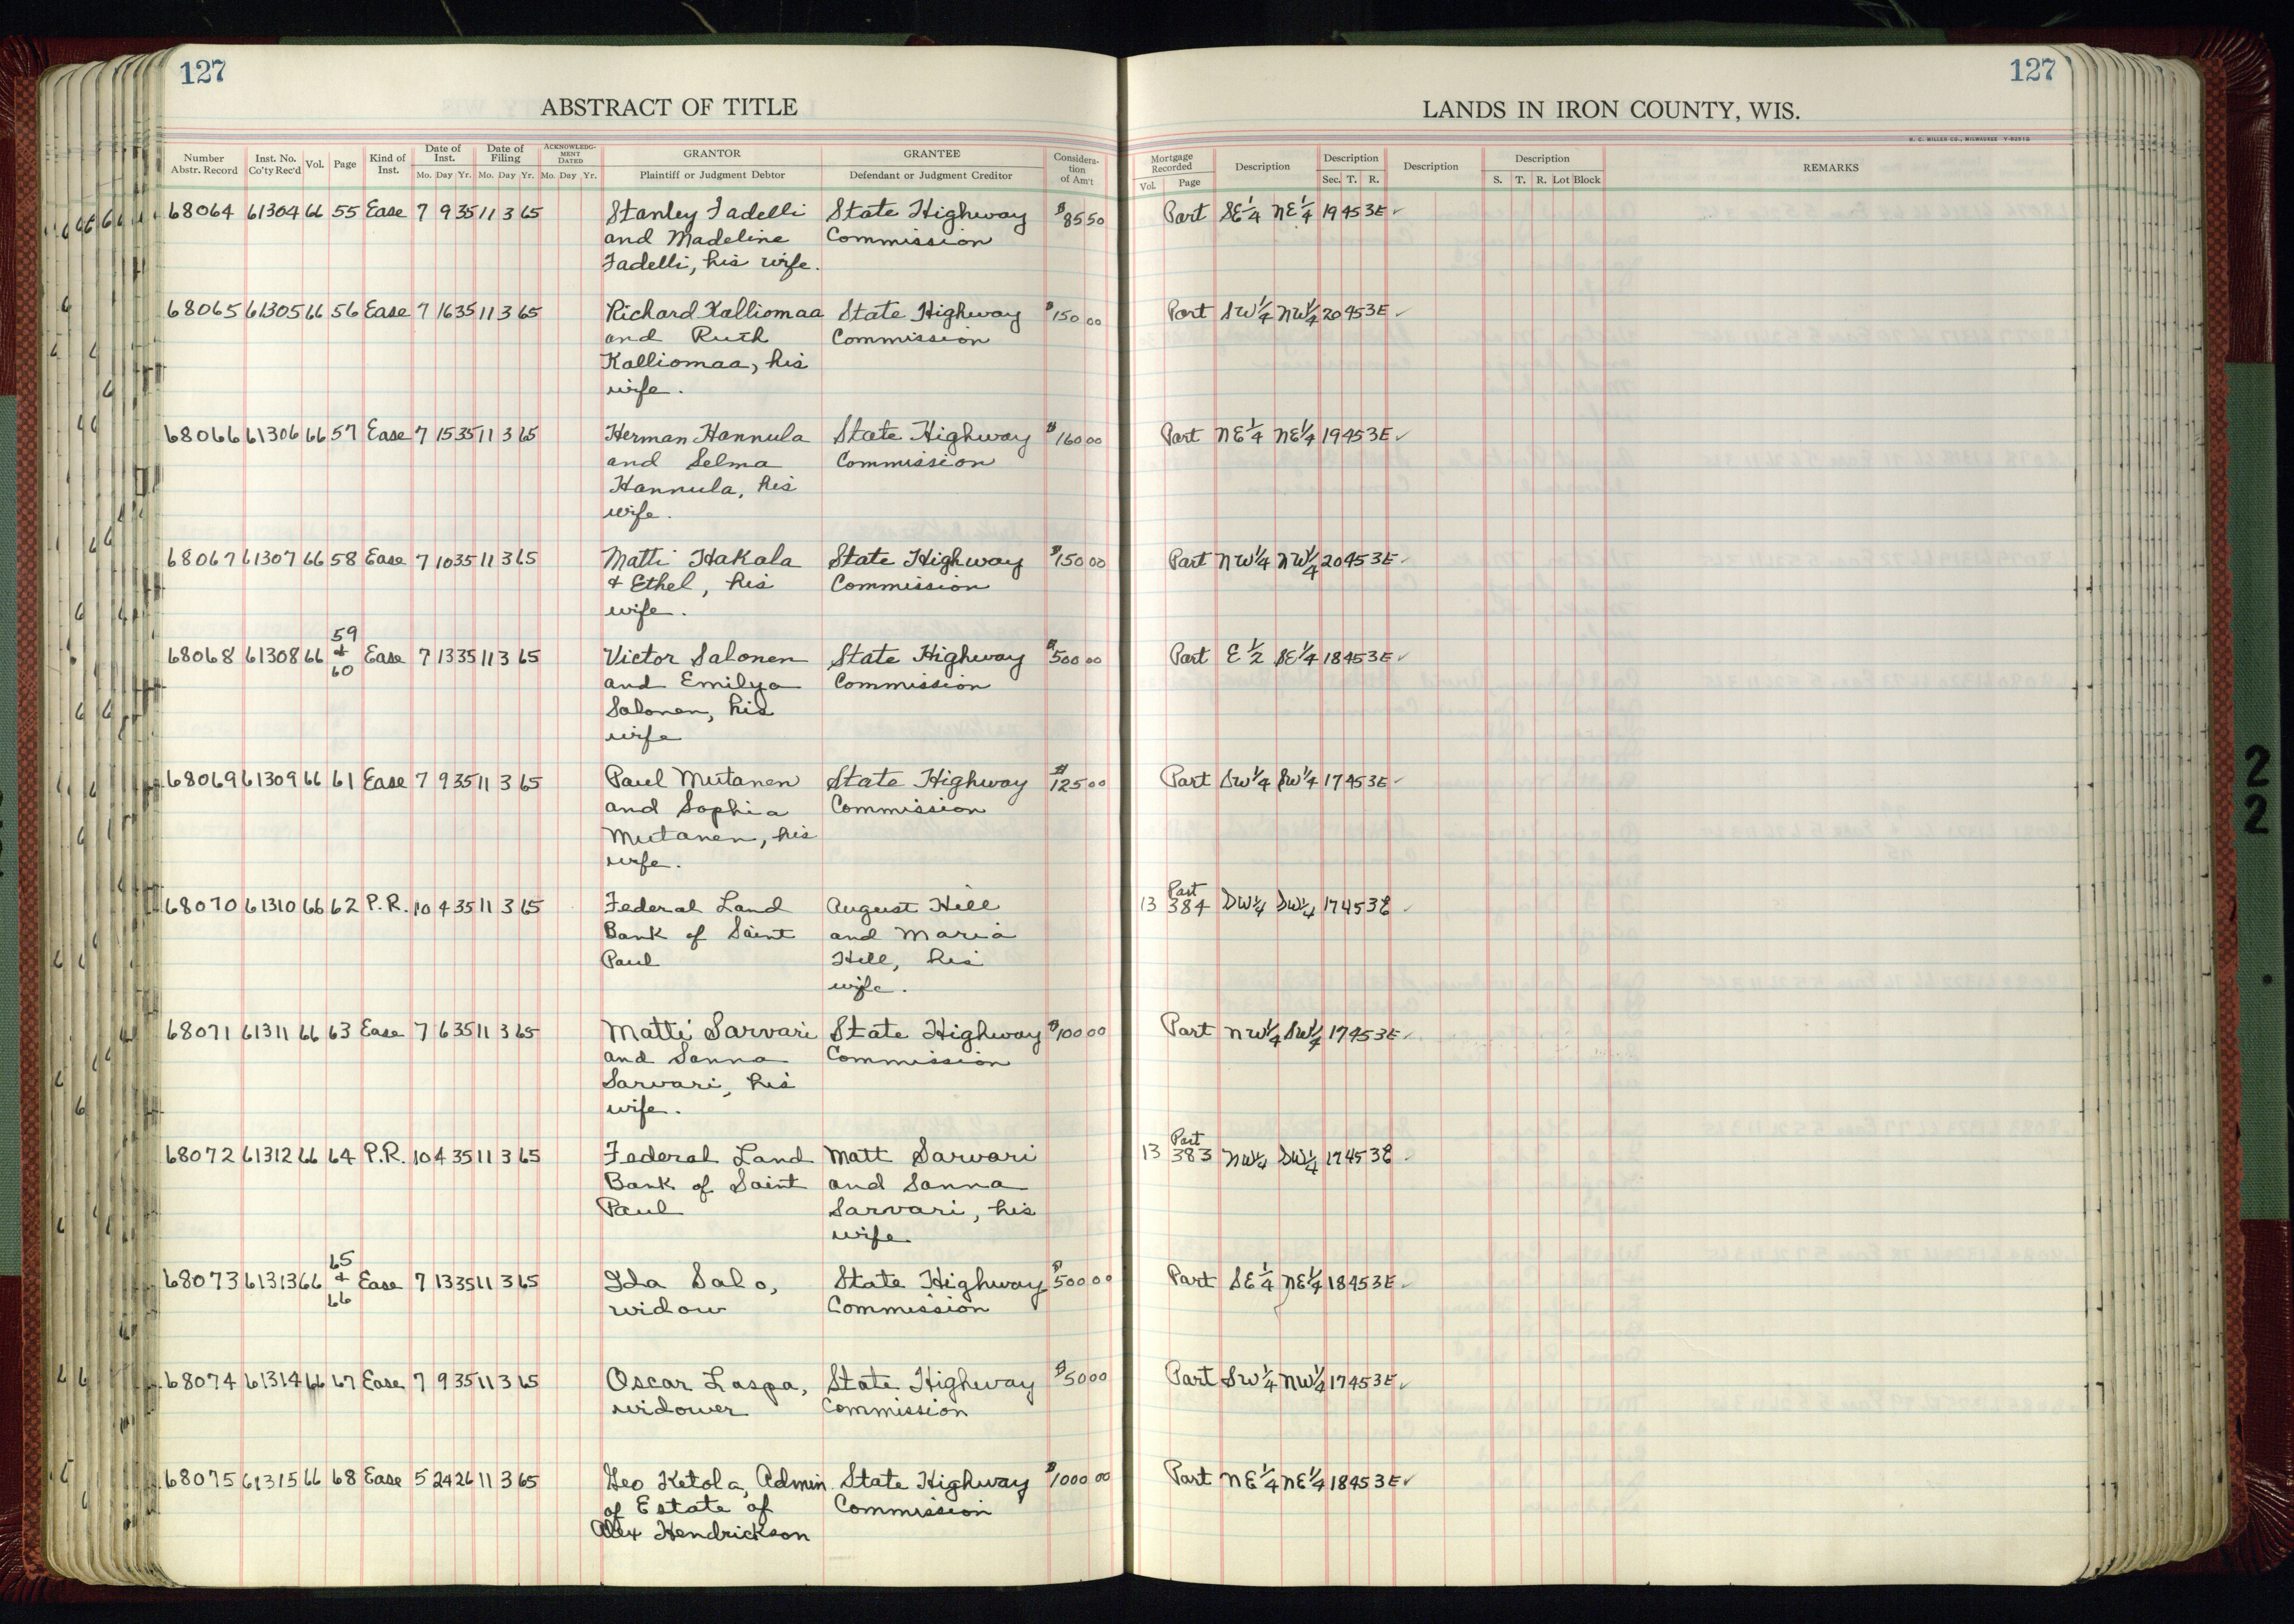 127
127
ABSTRACT OF TITLE
LANDS IN IRON COUNTY, WIS.
H. C. MILLER CO., MILWAUKEE
Number Abstr. Record Inst. No. Co'ty Rec'd Vol. Page Kind of Inst. Date of Inst. Mo. Day Yr. Date of Filing Mo. Day Yr. ACKNOWLEDGMENT DATED Mo. Day Yr. GRANTOR Plaintiff or Judgment Debtor GRANTEE Defendant or Judgment Creditor Consideration of Am't Mortgage Recorded Vol. Page Description Description Sec. T. R. Description Description S. T. R. Lot Block REMARKS
68064 61304 66 55 Ease 7 9 35 11 3 65 Stanley Fadelli State Highway $85 50 Part SE 1/4 NE 1/4 19 45 3E ✓
and Madeline Commission
Fadelli, his wife.
68065 61305 66 56 Ease 7 16 35 11 3 65 Richard Kalliomaa State Highway $150 00 Part SW 1/4 NW 1/4 20 45 3E ✓
and Ruth Commission
Kalliomaa, his
wife.
68066 61306 66 57 Ease 7 15 35 11 3 65 Herman Hannula State Highway $160 00 Part NE 1/4 NE 1/4 19 45 3E ✓
and Selma Commission
Hannula, his
wife.
68067 61307 66 58 Ease 7 10 35 11 3 65 Matti Hakala State Highway $150 00 Part NW 1/4 NW 1/4 20 45 3E ✓
& Ethel, his Commission
wife.
68068 61308 66 59 & 60 Ease 7 13 35 11 3 65 Victor Salonen State Highway $500 00 Part E 1/2 SE 1/4 18 45 3E ✓
and Emilya Commission
Salonen, his
wife
68069 61309 66 61 Ease 7 9 35 11 3 65 Paul Mutanen State Highway $125 00 Part SW 1/4 SW 1/4 17 45 3E ✓
and Sophia Commission
Mutanen, his
wife.
68070 61310 66 62 P.R. 10 4 35 11 3 65 Federal Land August Hill 13 Part 384 SW 1/4 SW 1/4 17 45 3E ✓
Bank of Saint and Maria
Paul Hill, his
wife.
68071 61311 66 63 Ease 7 6 35 11 3 65 Matti Sarvari State Highway $100 00 Part NW 1/4 SW 1/4 17 45 3E ✓
and Sanna Commission
Sarvari, his
wife.
68072 61312 66 64 P.R. 10 4 35 11 3 65 Federal Land Matt Sarvari 13 Part 383 NW 1/4 SW 1/4 17 45 3E ✓
Bank of Saint and Sanna
Paul Sarvari, his
wife
68073 61313 66 65 & 66 Ease 7 13 35 11 3 65 Ida Salo, State Highway $500 00 Part SE 1/4 NE 1/4 18 45 3E ✓
widow Commission
68074 61314 66 67 Ease 7 9 35 11 3 65 Oscar Laspa, State Highway $50 00 Part SW 1/4 NW 1/4 17 45 3E ✓
widower Commission
68075 61315 66 68 Ease 5 24 26 11 3 65 Geo Ketola, Admin. State Highway $1000 00 Part NE 1/4 NE 1/4 18 45 3E ✓
of Estate of Commission
Alex Hendrickson
2
2